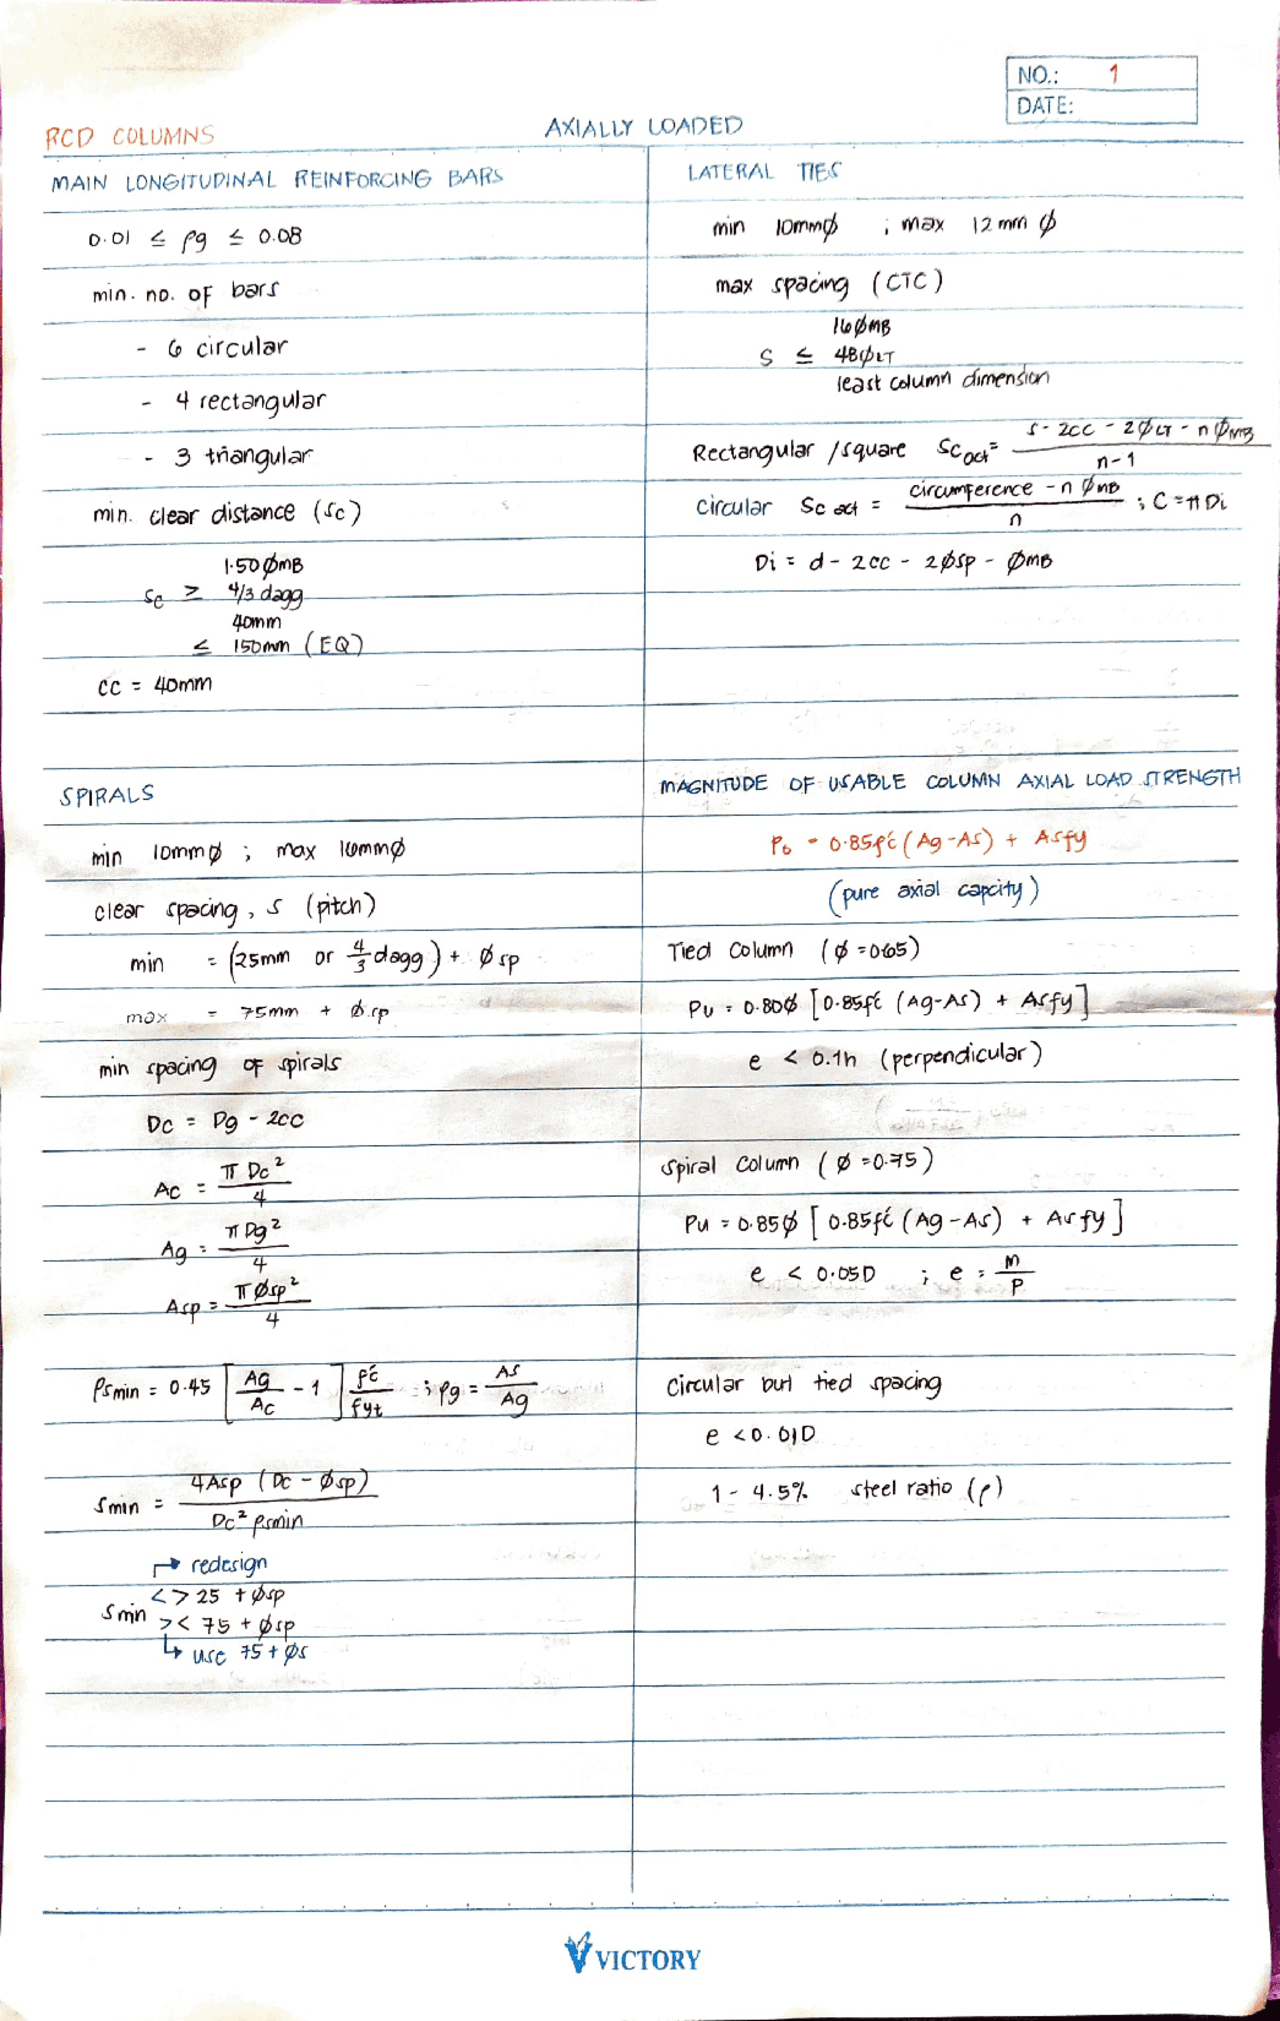 NO.: 1
DATE:
RCD COLUMNS
AXIALLY LOADED
MAIN LONGITUDINAL REINFORCING BARS
0.01 ≤ ρg ≤ 0.08
min. no. of bars
- 6 circular
- 4 rectangular
- 3 triangular
min. clear distance (sc)
1.50 ømB
sc ≥ 4/3 dagg
40mm
≤ 150mm (EQ)
cc = 40mm
LATERAL TIES
min 10mmø ; max 12mm ø
max spacing (CTC)
16ømB
s ≤ 48øLT
least column dimension
Rectangular /square Sc act = s - 2cc - 2øLT - nømB / n-1
circular Sc act = circumference - n ømB / n ; C = πDi
Di = d - 2cc - 2øsp - ømB
SPIRALS
min 10mmø ; max 16mmø
clear spacing, s (pitch)
min = (25mm or 4/3 dagg) + øsp
max = 75mm + ø.sp
min spacing of spirals
Dc = Dg - 2cc
Ac = πDc² / 4
Ag = πDg² / 4
Asp = πøsp² / 4
ρsmin = 0.45 [Ag/Ac - 1] f'c/fyt ; ρg = As/Ag
smin = 4Asp (Dc - øsp) / Dc² ρsmin
↱ redesign
< > 25 + øsp
smin
> < 75 + øsp
↳ use 75 + øs
MAGNITUDE OF USABLE COLUMN AXIAL LOAD STRENGTH
Po = 0.85f'c (Ag-As) + Asfy
(pure axial capcity)
Tied Column (ø = 0.65)
Pu = 0.80ø [0.85f'c (Ag-As) + Asfy]
e < 0.1h (perpendicular)
Spiral Column (ø = 0.75)
Pu = 0.85ø [0.85f'c (Ag-As) + Asfy]
e < 0.05D ; e = M/P
Circular but tied spacing
e < 0.01D
1 - 4.5% steel ratio (ρ)
VICTORY